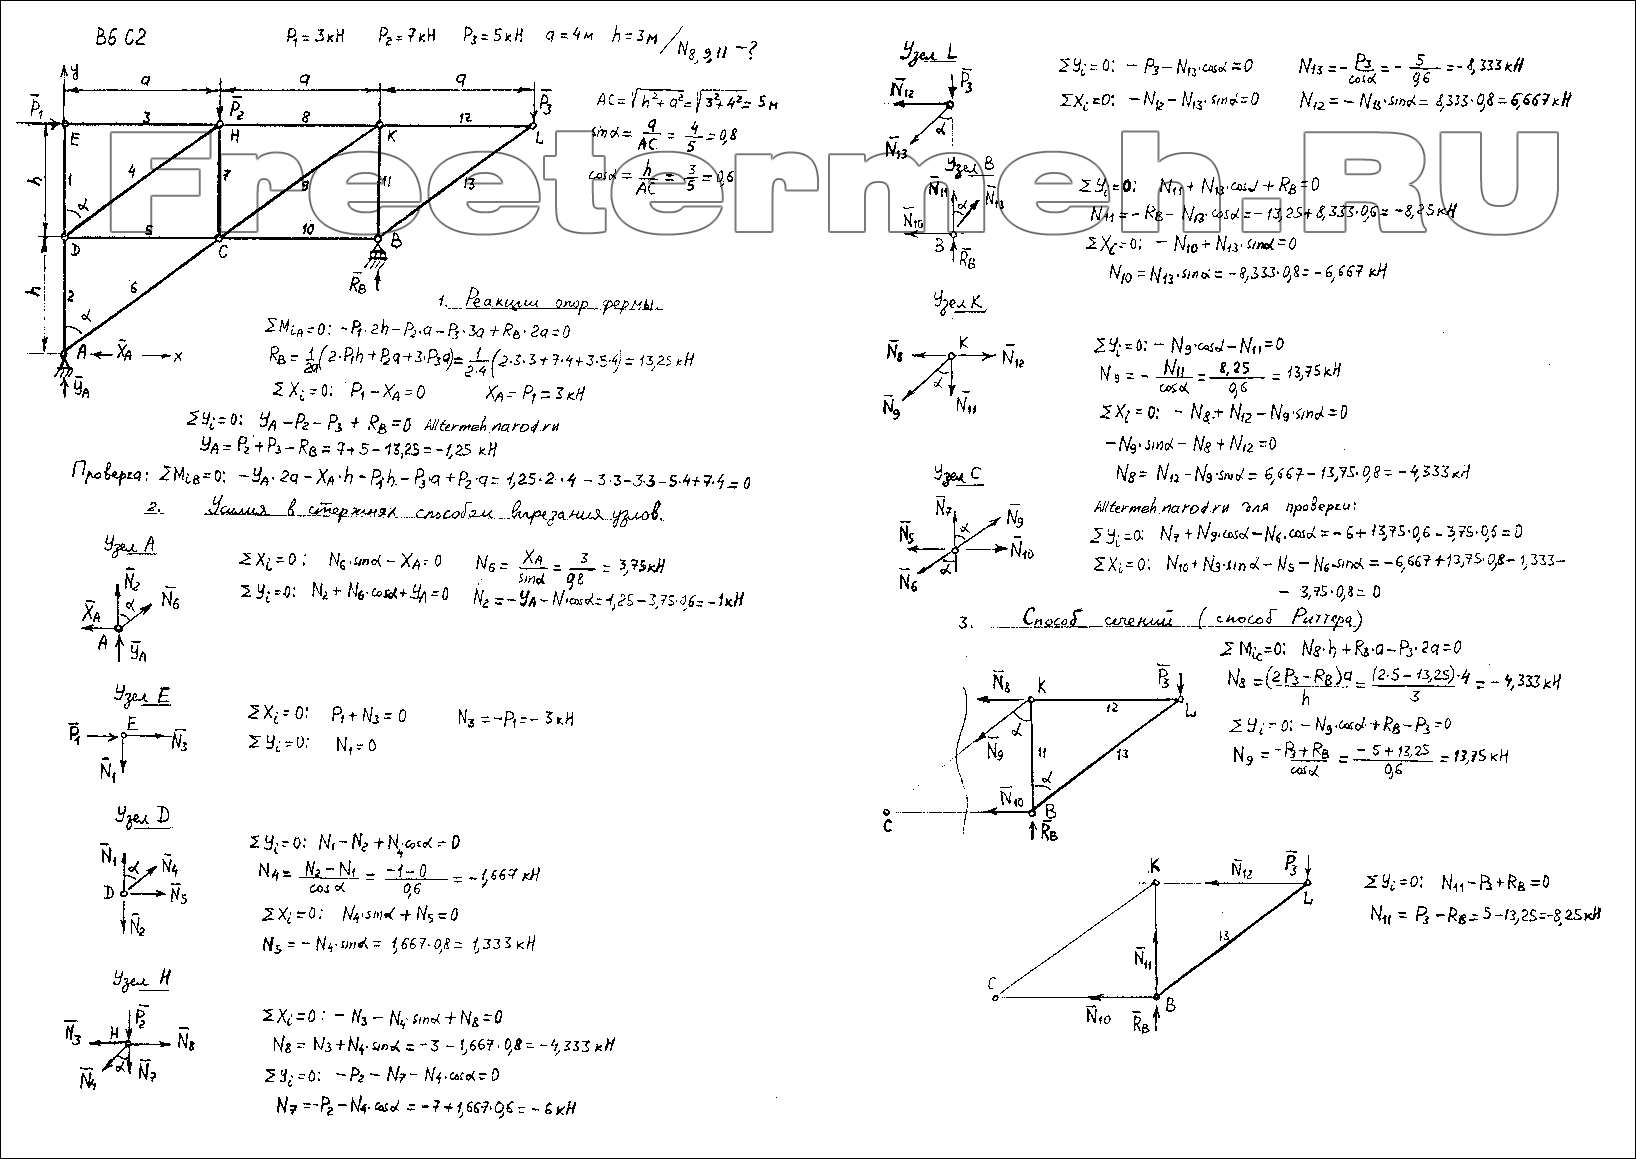 В6 С2
P₁=3кН P₂=7кН P₃=5кН a=4м h=3м / N₈,₉,₁₁ -?
y
a a a
P̄₁ P̄₂ P̄₃
3 8 12
E H K L
h 1 4 7 9 11 13
α
5 10
D C B
h 2 6 R̄B
α
A X̄A x
ȲA
AC=√h²+a²=√3²+4²=5м
sinα=a/AC=4/5=0,8
cosα=h/AC=3/5=0,6
Freetermeh.RU
1. Реакции опор фермы.
ΣMiA=0: -P₁·2h-P₂·a-P₃·3a+RB·2a=0
RB=1/2a(2·P₁h+P₂a+3·P₃a)=1/2·4(2·3·3+7·4+3·5·4)=13,25кН
ΣXi=0: P₁-XA=0 XA=P₁=3кН
ΣYi=0: YA-P₂-P₃+RB=0 Alltermeh.narod.ru
YA=P₂+P₃-RB=7+5-13,25=-1,25 кН
Проверка: ΣMiB=0: -YA·2a-XA·h-P₁h-P₃·a+P₂·a=1,25·2·4-3·3-3·3-5·4+7·4=0
2. Усилия в стержнях способом вырезания узлов.
Узел А
N̄₂
N̄₆
X̄A α
A
ȲA
ΣXi=0: N₆·sinα-XA=0 N₆=XA/sinα=3/0,8=3,75кН
ΣYi=0: N₂+N₆·cosα+YA=0 N₂=-YA-N·cosα=1,25-3,75·0,6=-1кН
Узел Е
P̄₁ E N̄₃
N̄₁
ΣXi=0: P₁+N₃=0 N₃=-P₁=-3кН
ΣYi=0: N₁=0
Узел D
N̄₁ N̄₄
α
D N̄₅
N̄₂
ΣYi=0: N₁-N₂+N₄cosα=0
N₄=N₂-N₁/cosα=-1-0/0,6=-1,667кН
ΣXi=0: N₄·sinα+N₅=0
N₅=-N₄·sinα=1,667·0,8=1,333кН
Узел Н
P̄₂
N̄₃ H N̄₈
α
N̄₄ N̄₇
ΣXi=0: -N₃-N₄·sinα+N₈=0
N₈=N₃+N₄·sinα=-3-1,667·0,8=-4,333кН
ΣYi=0: -P₂-N₇-N₄·cosα=0
N₇=-P₂-N₄·cosα=-7+1,667·0,6=-6кН
Узел L
P̄₃
N̄₁₂
α
N̄₁₃
ΣYi=0: -P₃-N₁₃·cosα=0 N₁₃=-P₃/cosα=-5/0,6=-8,333кН
ΣXi=0: -N₁₂-N₁₃·sinα=0 N₁₂=-N₁₃·sinα=8,333·0,8=6,667кН
Узел В
N̄₁₁ N̄₁₃
α
N̄₁₀
B R̄B
ΣYi=0: N₁₁+N₁₃·cosα+RB=0
N₁₁=-RB-N₁₃·cosα=-13,25+8,333·0,6=-8,25кН
ΣXi=0: -N₁₀+N₁₃·sinα=0
N₁₀=N₁₃·sinα=-8,333·0,8=-6,667 кН
Узел К
N̄₈ K N̄₁₂
α
N̄₉ N̄₁₁
ΣYi=0: -N₉·cosα-N₁₁=0
N₉=-N₁₁/cosα=8,25/0,6=13,75кН
ΣXi=0: -N₈+N₁₂-N₉·sinα=0
-N₉·sinα-N₈+N₁₂=0
N₈=N₁₂-N₉·sinα=6,667-13,75·0,8=-4,333кН
Узел С
N̄₇ N̄₉
N̄₅ α N̄₁₀
α
N̄₆
Alltermeh.narod.ru для проверки:
ΣYi=0: N₇+N₉·cosα-N₆·cosα=-6+13,75·0,6-3,75·0,6=0
ΣXi=0: N₁₀+N₉·sinα-N₅-N₆·sinα=-6,667+13,75·0,8-1,333-
-3,75·0,8=0
3. Способ сечений (способ Риттера)
N̄₈ K P̄₃
12 L
α
N̄₉ 11 13
α
N̄₁₀ B
C R̄B
ΣMic=0: N₈·h+RB·a-P₃·2a=0
N₈=(2P₃-RB)a/h=(2·5-13,25)·4/3=-4,333кН
ΣYi=0: -N₉·cosα+RB-P₃=0
N₉=-P₃+RB/cosα=-5+13,25/0,6=13,75кН
K N̄₁₂ P̄₃
L
13
N̄₁₁
C B
N̄₁₀ R̄B
ΣYi=0: N₁₁-P₃+RB=0
N₁₁=P₃-RB=5-13,25=-8,25кН